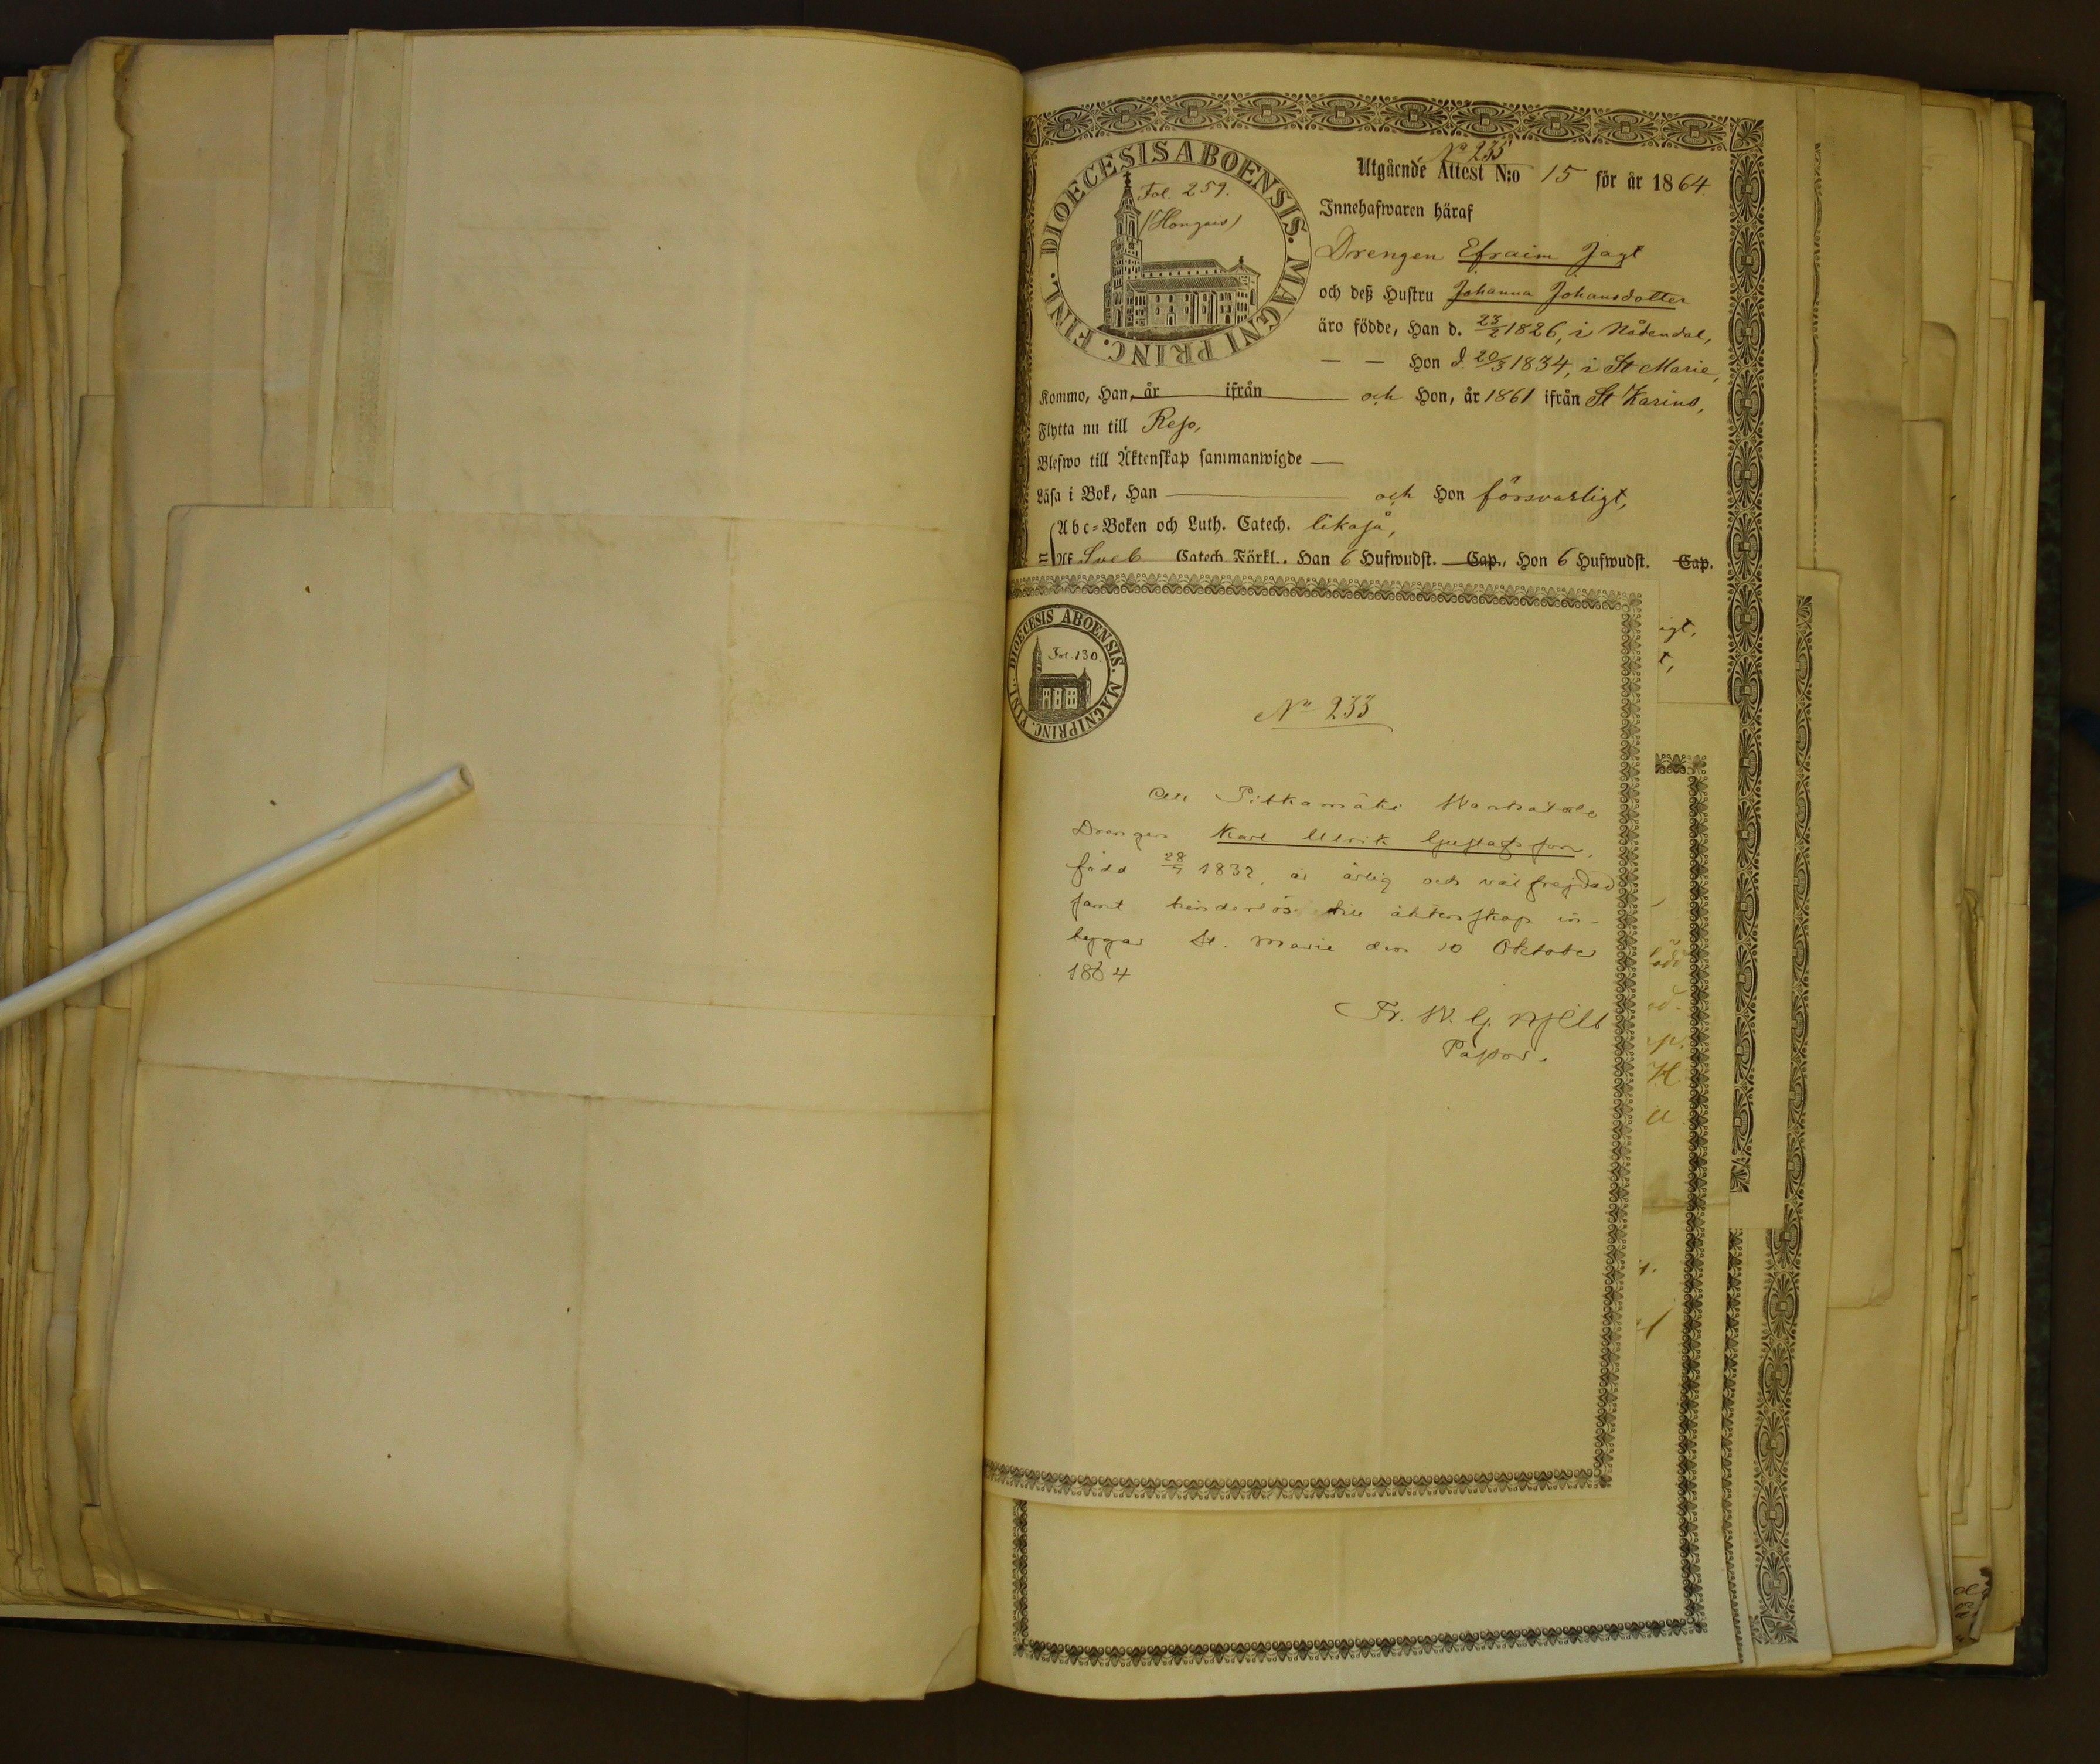 DIOECESIS ABOENSIS. MAGNI PRINC. FINL.
Fol. 259.
(Hongais)
No 235
Utgående Attest N:o 15 för år 1864.
Innehafwaren häraf
Drengen Efraim Jagt
och deß Hustru Johanna Johansdotter
äro födde, Han d. 23/2 1826, i Nådendal,
— — Hon d. 20/3 1834, i St Marie,
Kommo, Han, år ifrån och Hon, år 1861 ifrån St Karins,
Flytta nu till Reso,
Blefwo till Äktenskap sammanwigde —
Läsa i Bok, Han — och Hon försvarligt,
Abc-Boken och Luth. Catech. likaså,
Af Sveb Catech Förkl., Han 6 Hufwudst. Cap., Hon 6 Hufwudst. Cap.
igt,
t,
DIOECESIS ABOENSIS. MAGNI PRINC. FINL.
Fol. 130.
No 233
Att Pitkamäki Wanhatalo
Drengen Karl Ulrik Gustafsson,
född 28/7 1832, är ärlig och väl frejdad
samt hinderlös till äktenskap in-
tygar St. Marie den 10 Oktober
1864
Fr. W. G. Hjelt
Pastor.